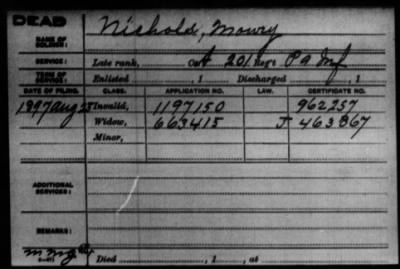 DEAD
NAME OF SOLDIER: Nichold, Mowry
SERVICE: Late rank, Co. A 201 Reg't Pa Inf
TERM OF SERVICE: Enlisted , 1 Discharged , 1
DATE OF FILING. CLASS. APPLICATION NO. LAW. CERTIFICATE NO.
1897 Aug 25 Invalid, 1197150 962257
Widow, 663415 J 463867
Minor,
ADDITIONAL SERVICES:
REMARKS:
Died , 1 , at